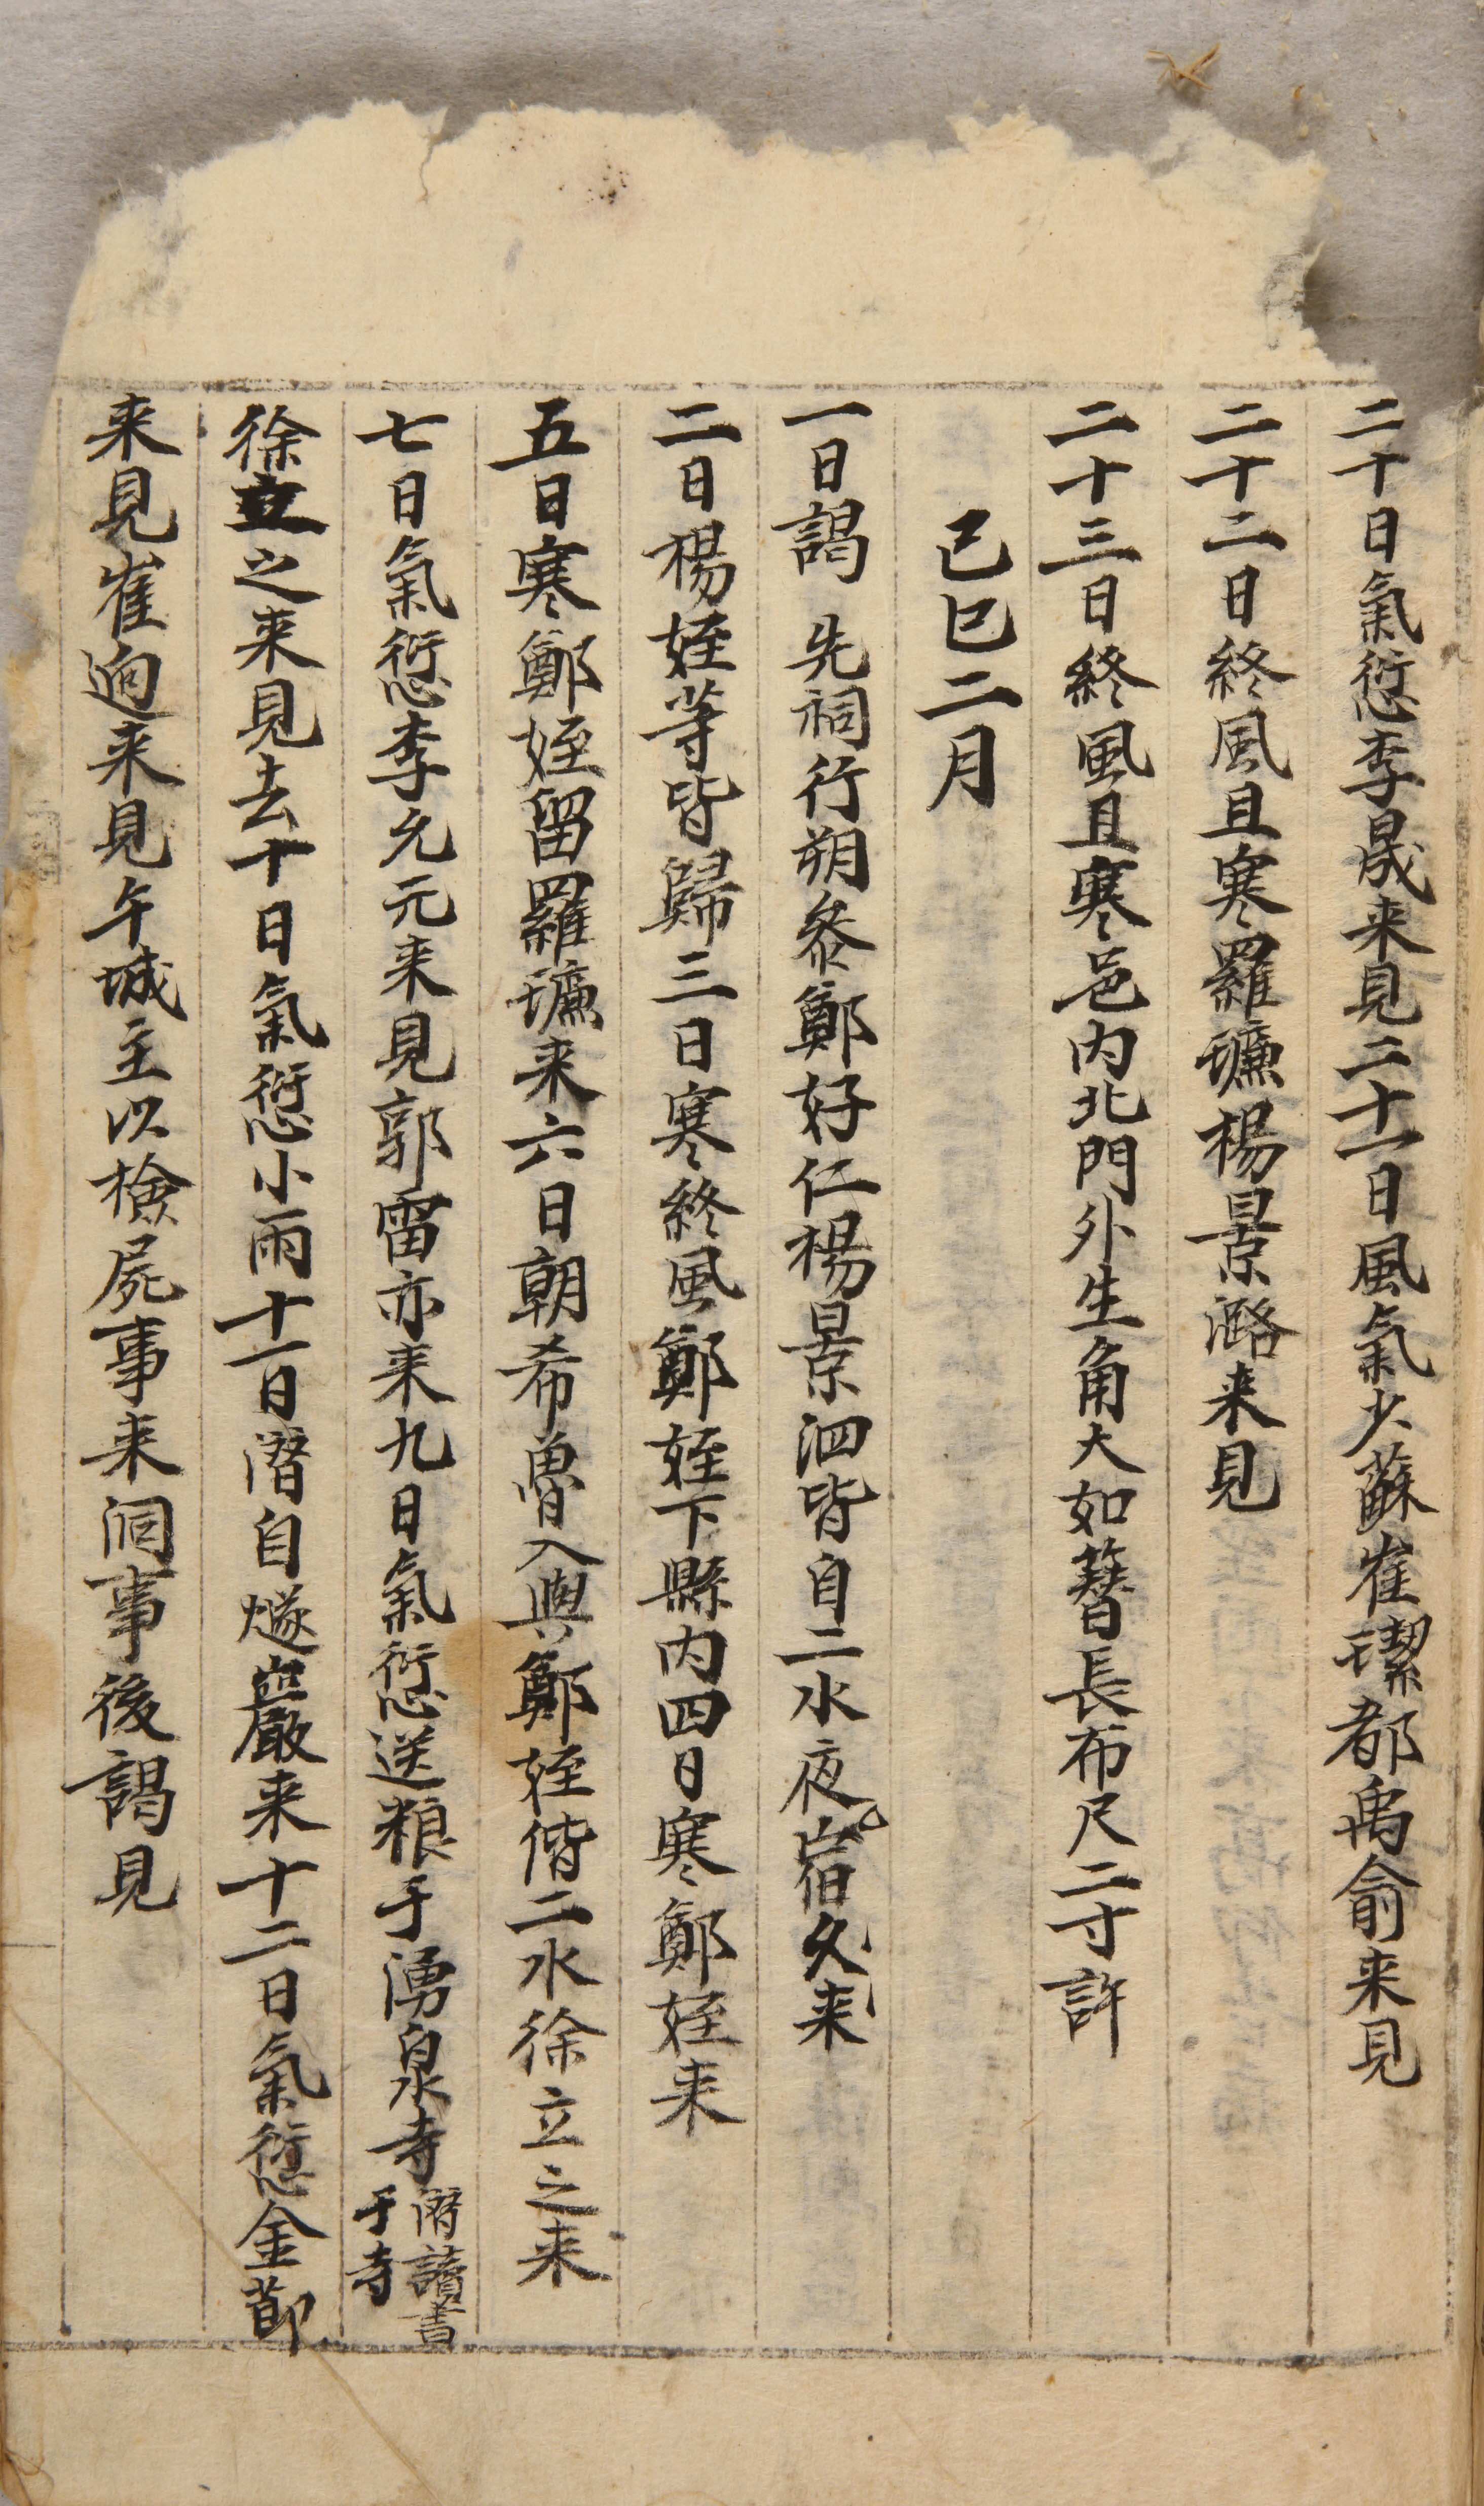 二十日氣愆李晟来見二十一日風氣少蘇崔㻮都禹俞来見
二十二日終風且寒羅㺣楊景潞来見
二十三日終風且寒邑内北門外生角大如簪長布尺二寸許
己巳二月
一日謁 先祠行朔叅鄭好仁楊景泗皆自二水夜宿久来
二日楊姪等皆歸三日寒終風鄭姪下縣内四日寒鄭姪来
五日寒鄭姪留羅㺣来六日朝希魯入輿鄭姪偕二水徐立之来
七日氣愆李允元来見郭雷亦来九日氣愆送粮于湧泉寺㵙讀書于寺
徐立之来見去十日氣愆小雨十一日㵙自燧巖来十二日氣愆金節
来見崔逈来見午城主以檢屍事来洞事後謁見